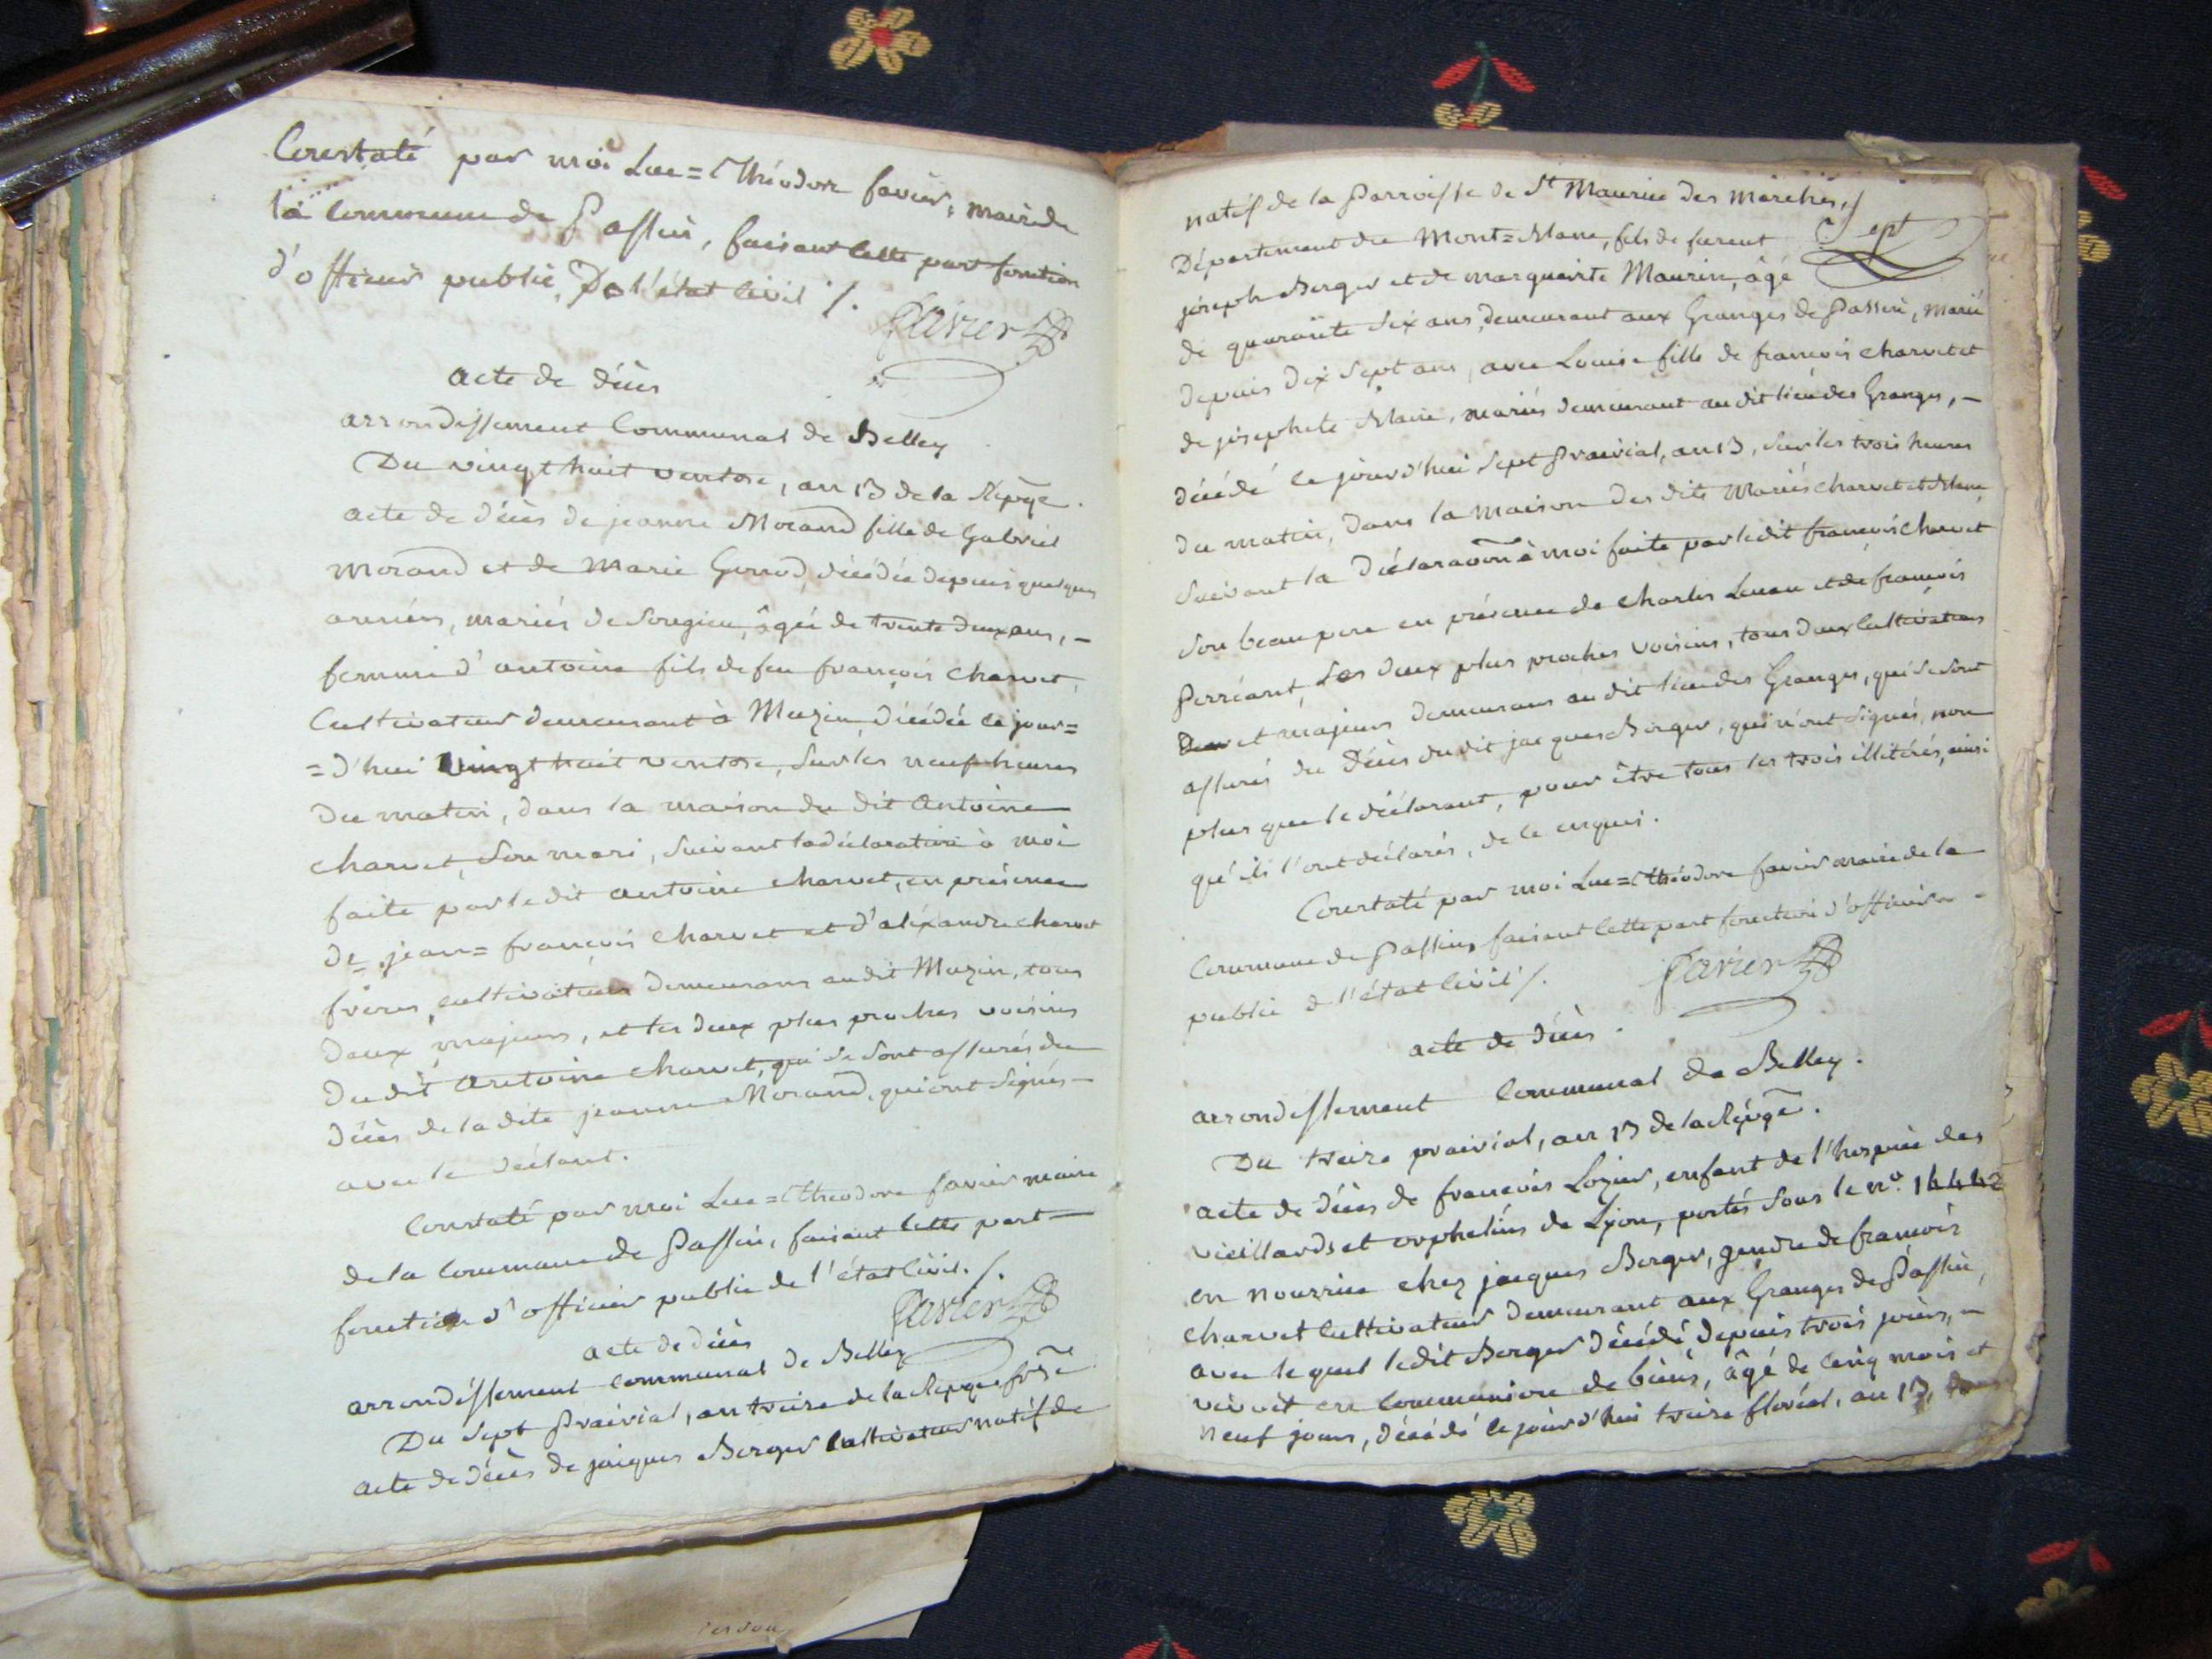 Constaté par moi Luc=Théodore favier, maire de
la Commune de Passin, faisant cette part fonction
d'officier public, De l'état civil /.
Favier
acte de décès
arrondissement Communal de Belley
Du vingt huit ventose, an 13 de la Répqe.
acte de décès de jeanne Morand fille de Gabriel
Morand et de Marie Gonod, décédée depuis quelques
années, mariés de Songieu, âgée de trente deux ans, –
femme d'antoine fils de feu françois Charvet,
Cultivateur demeurant à Muzin, décédée ce jour=
=d'hui vingt huit ventose, sur les neuf heures
du matin, dans la maison du dit Antoine
Charvet, son mari, suivant la déclaration à moi
faite par le dit antoine Charvet, en présence
de jean=françois Charvet et d'aléxandre charvet
frères, cultivateurs demeurans audit Muzin, tous
deux majeurs, et les deux plus proches voisins
du dit Antoine Charvet, qui se sont assurés du
décès de la dite jeanne Morand, qui ont signés –
avec le déclant.
Constaté par moi Luc=Théodore favier maire
de la Commune de Passin, faisant cette part –
fonction d'officier public de l'état civil. /.
Favier
acte de décès
arrondissement communal de Belley
Du sept Prairial, an treize de la Repque frse
acte de décès de jacques Berger Cultivateur natif de
natif de la Parroisse de St Maurice des Marches,
Sept
Département du Mont=Blanc, fils de furent
joseph Berger et de marguerite Maurin, âgé
de quarante six ans, demeurant aux Granges de Passin, marié
depuis dix sept ans, avec Louise fille de françois charvet et
de josephete Blanc, mariés demeurant au dit lieu des Granges, –
décédé ce jourd'hui sept Prairial, an 13, sur les trois heures
du matin, dans la maison des dits Mariés charvet et Blanc
suivant la déclaraon à moi faite par le dit françois Charvet
son beau pere en présence de Charles et de françois
Perréant, les deux plus proches voisins, tous deux Cultivateurs
et majeurs demeurans au dit lieu des Granges, qui se sont
assurés du Décès du dit jacques Berger, qui n'ont signés, non
plus que le déclarant, pour être tous les trois illitérés, ainsi
qu'ils l'ont déclarés, de ce enquis.
Constaté par moi Luc=Théodore favier maire de la
Commune de Passin, faisant cette part fonction d'officier –
public de l'état civil /.
Favier
acte de décès.
arrondissement Communal de Belley.
Du treize prairial, an 13 de la Répqe.
acte de décès de françois Lozier, enfant de l'hospice des
vieillards et orphelins de Lyon, portés sous le no. 14442
en nourrice chez jacques Berger, gendre de françois
Charvet Cultivateur demeurant aux Granges de Passin,
avec le quel ledit Berger décédé depuis trois jours, –
vivoit en Communion de biens, âgé de cinq mois et
neuf jours, décédé ce jourd'hui treize floréal, an 13,